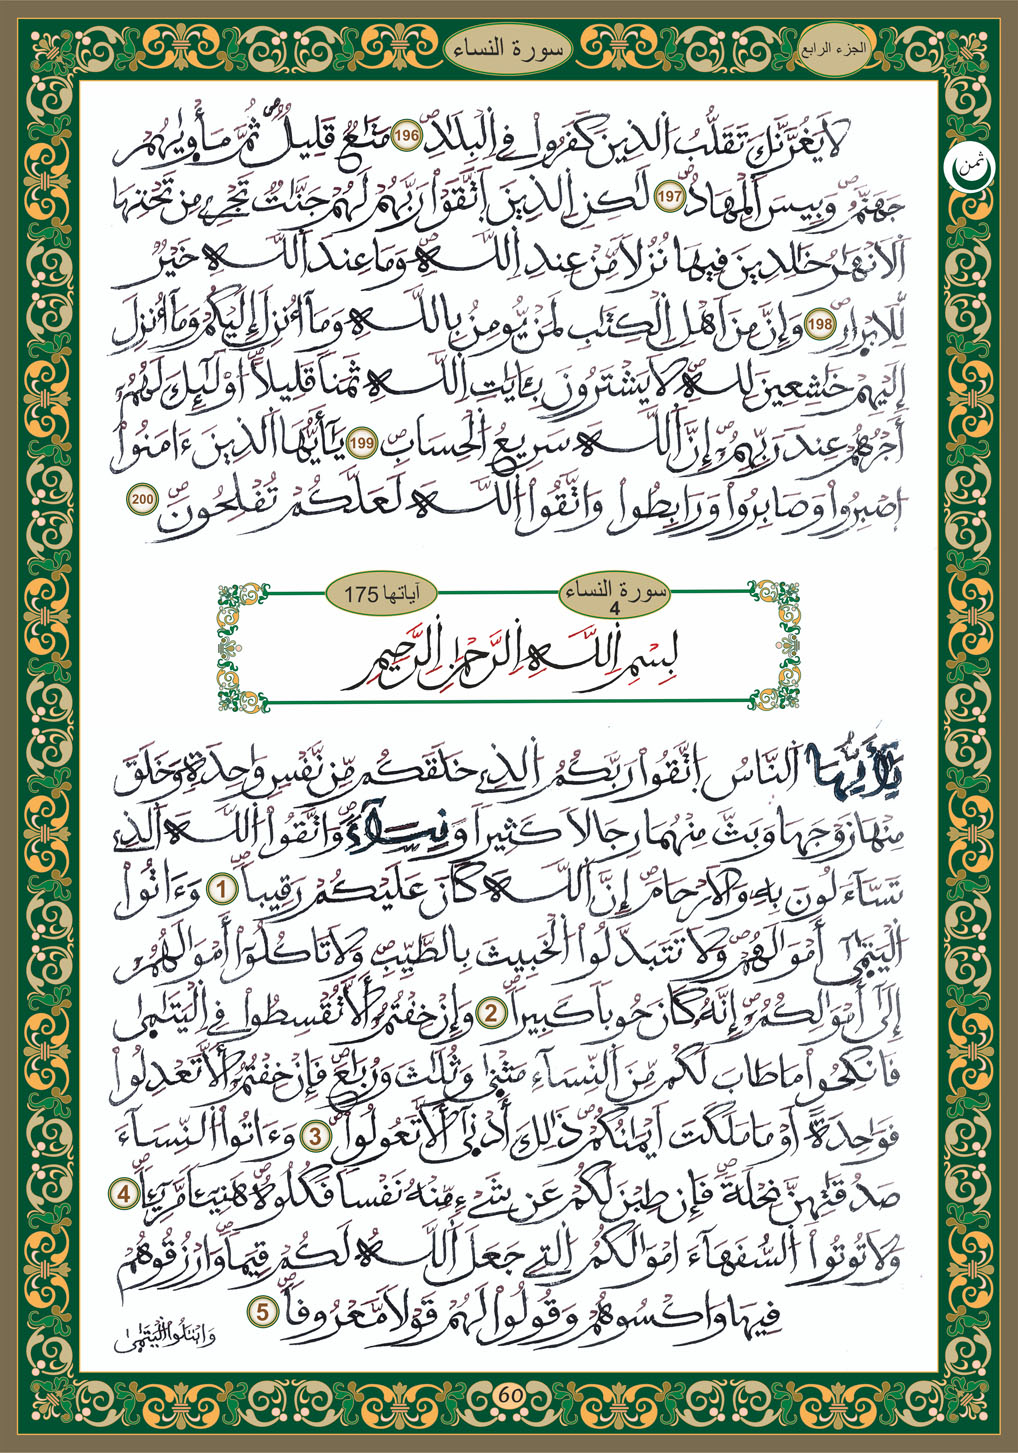 الجزء الرابع
سورة النساء
ثمن
لَا يَغُرَّنَّكَ تَقَلُّبُ الذِينَ كَفَرُواْ فِے الْبِلَٰدِ 196 مَتَٰعٌ قَلِيلٌ ثُمَّ مَأْو۪يٰهُمْ
جَهَنَّمُ وَبِيسَ اَلْمِهَادُ 197 لَٰكِنِ اِلذِينَ اَتَّقَوْاْ رَبَّهُمْ لَهُمْ جَنَّٰتٌ تَجْرِے مِن تَحْتِهَا
اَلَانْهَٰرُ خَٰلِدِينَ فِيهَا نُزُلاً مِّنْ عِندِ اِللَّهِ وَمَا عِندَ اَللَّهِ خَيْرٌ
لِّلَابْرِارِ 198 وَإِنَّ مِنَ اَهْلِ اِلْكِتَٰبِ لَمَنْ يُّومِنُ بِاللَّهِ وَمَا أُنزِلَ إِلَيْكُمْ وَمَا أُنزِلَ
إِلَيْهِمْ خَٰشِعِينَ لِلهِ لَا يَشْتَرُونَ بِـَٔايَٰتِ اِللَّهِ ثَمَناً قَلِيلاً اُوْلَٰئِكَ لَهُمُ
أَجْرُهُمْ عِندَ رَبِّهِمُ إِنَّ اَللَّهَ سَرِيعُ الْحِسَابِ 199 يَٰأَيُّهَا الذِينَ ءَامَنُواْ
اِصْبِرُواْ وَصَابِرُواْ وَرَابِطُواْ وَاتَّقُواْ اللَّهَ لَعَلَّكُمْ تُفْلِحُونَ 200
سورة النساء 4
آياتها 175
بِسْمِ اِللَّهِ اِلرَّحْمَٰنِ اِلرَّحِيمِ
يَٰأَيُّهَا اَلنَّاسُ اُتَّقُواْ رَبَّكُمُ اُلذِے خَلَقَكُم مِّن نَّفْسٍ وَٰحِدَةٍ وَخَلَقَ
مِنْهَا زَوْجَهَا وَبَثَّ مِنْهُمَا رِجَالاً كَثِيراً وَنِسَآءً وَاتَّقُواْ اللَّهَ اَلذِے
تَسَّآءَلُونَ بِهِۦ وَالَارْحَامَ إِنَّ اَللَّهَ كَانَ عَلَيْكُمْ رَقِيباً 1 وَءَاتُواْ
اَلْيَتَٰمَىٰ أَمْوَٰلَهُمْ وَلَا تَتَبَدَّلُواْ الْخَبِيثَ بِالطَّيِّبِ وَلَا تَاكُلُواْ أَمْوَٰلَهُمُ
إِلَىٰ أَمْوَٰلِكُمُ إِنَّهُۥ كَانَ حُوباً كَبِيراً 2 وَإِنْ خِفْتُمُ أَلَّا تُقْسِطُواْ فِے اِلْيَتَٰمَىٰ
فَانكِحُواْ مَا طَابَ لَكُم مِّنَ اَلنِّسَآءِ مَثْنَىٰ وَثُلَٰثَ وَرُبَٰعَ فَإِنْ خِفْتُمُ أَلَّا تَعْدِلُواْ
فَوَٰحِدَةً اَوْ مَا مَلَكَتَ اَيْمَٰنُكُمْ ذَٰلِكَ أَدْنَىٰ أَلَّا تَعُولُواْ 3 وَءَاتُواْ النِّسَآءَ
صَدُقَٰتِهِنَّ نِحْلَةً فَإِن طِبْنَ لَكُمْ عَن شَےْءٍ مِّنْهُ نَفْساً فَكُلُوهُ هَنِيٓـٔاً مَّرِيٓـٔاً 4
وَلَا تُوتُواْ السُّفَهَآءَ امْوَٰلَكُمُ اُلتِے جَعَلَ اَللَّهُ لَكُمْ قِيَماً وَارْزُقُوهُمْ
فِيهَا وَاكْسُوهُمْ وَقُولُواْ لَهُمْ قَوْلاً مَّعْرُوفاً 5
وَابْتَلُواْ الْيَتَٰمَىٰ
60